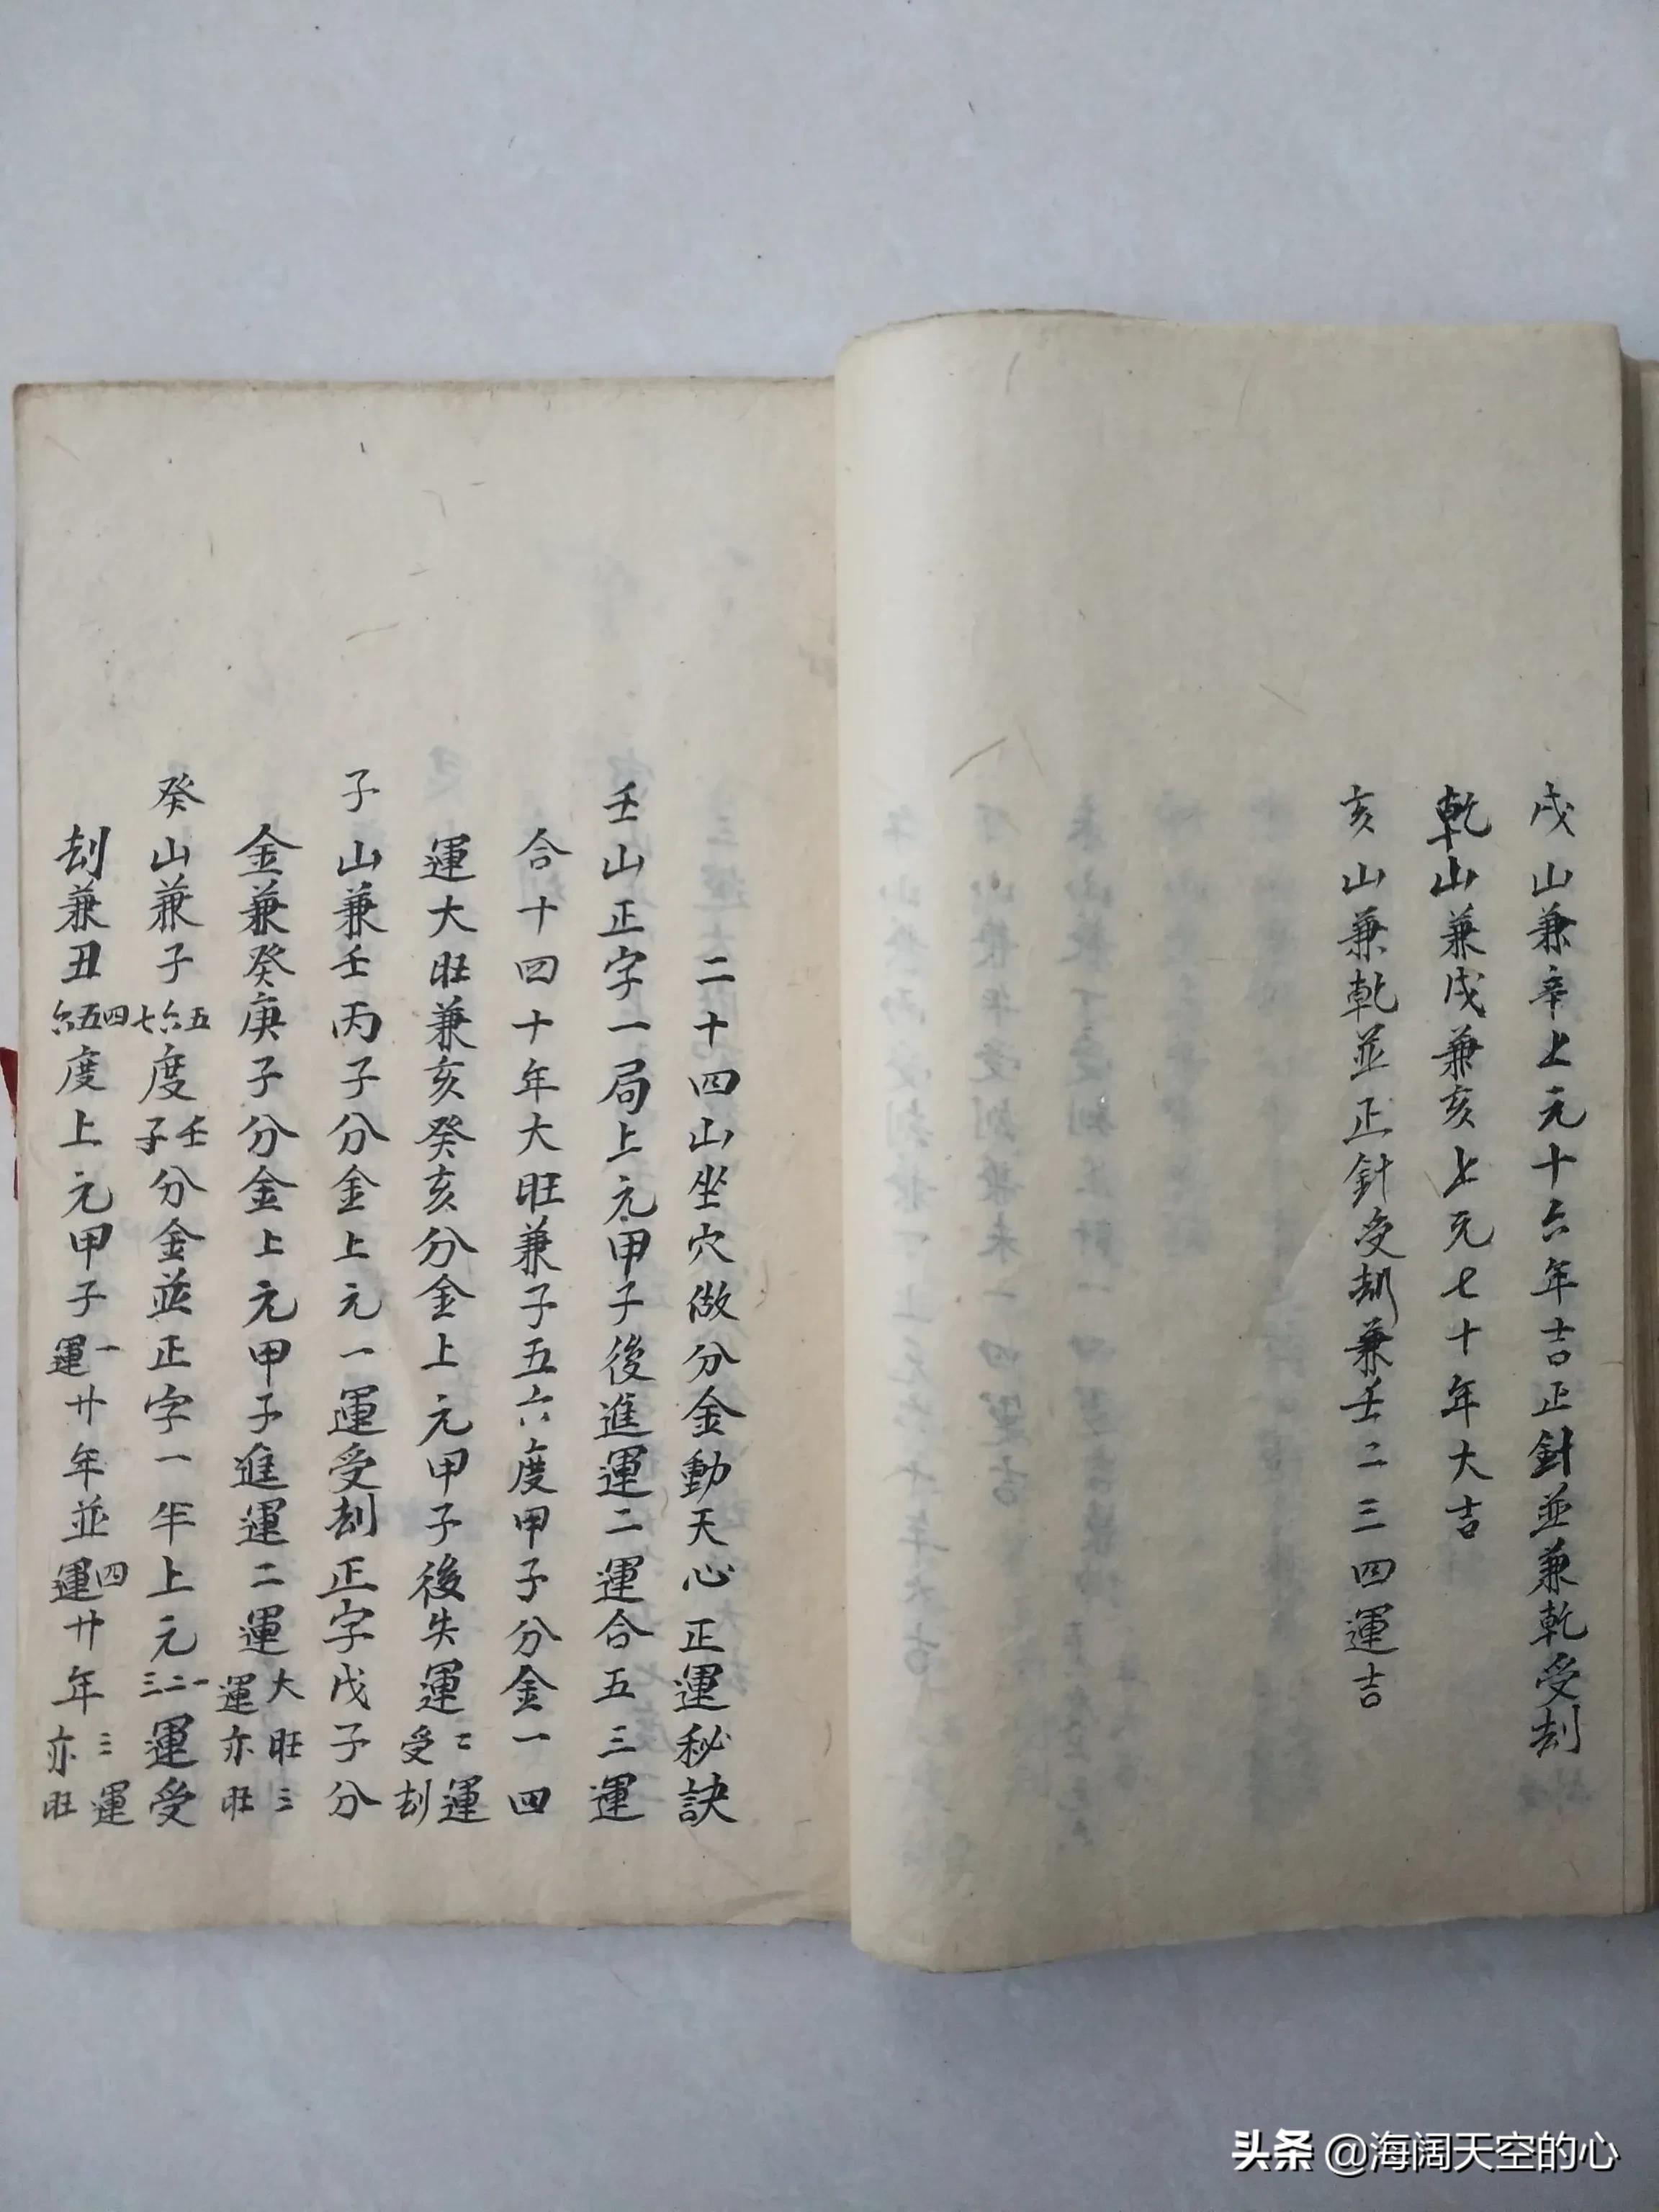 戌山兼辛上元十六年吉正針並兼乾受刦
乾山兼戌兼亥上元七十年大吉
亥山兼乾並正針受刼兼壬二三四運吉
二十四山坐穴做分金動天心正運秘訣
壬山正字一局上元甲子後進運二運合五三運
合十四十年大旺兼子五六度甲子分金一四
運大旺兼亥癸亥分金上元甲子後失運二運受刦
子山兼壬丙子分金上元一運受刦正字戊子分
金兼癸庚子分金上元甲子進運二運大旺三運亦旺
癸山兼子五六七度壬子分金並正字一半上元一二三運受
刦兼丑四五六度上元甲子一運廿年並四運廿年三運亦旺
头条 @海阔天空的心